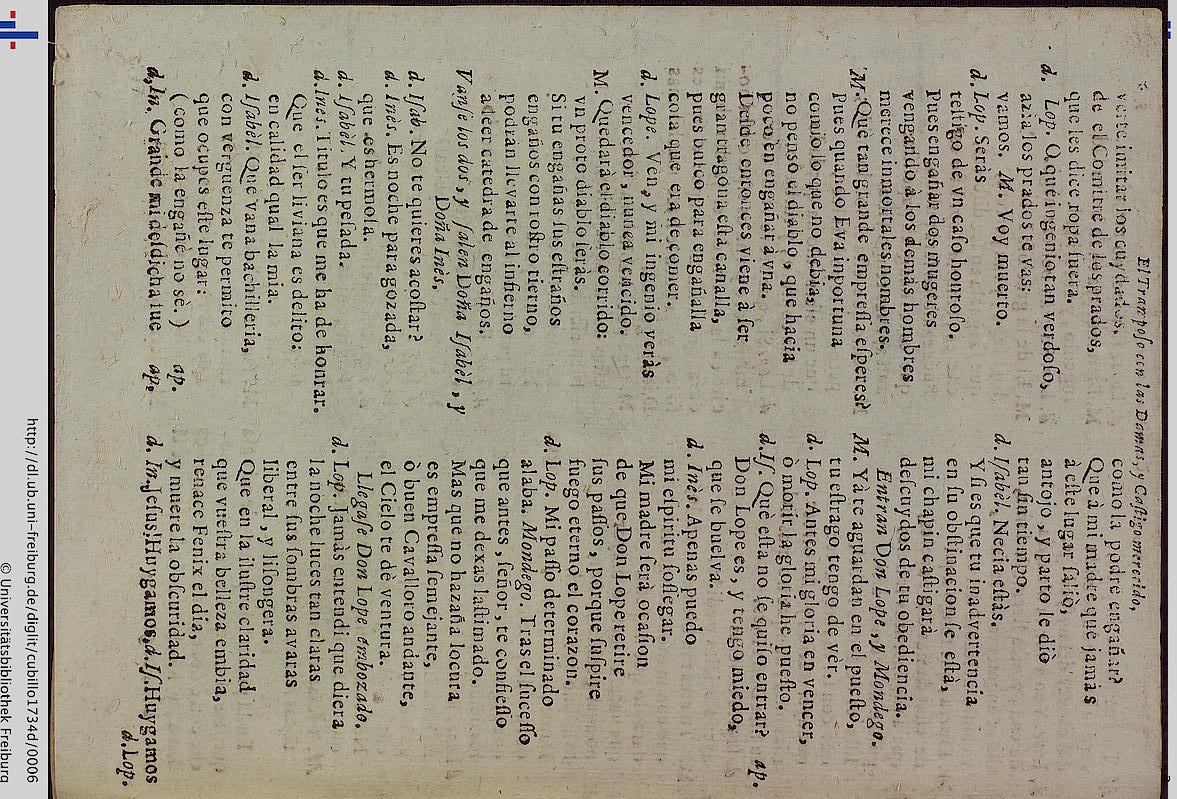 6
El Tramposo con las Damas, y Castigo merecido,
verte imitar los cuydados,
de el Comitre de los prados,
que les dice, ropa fuera.
d. Lop. O què ingenio tan verdoso,
azia los prados te vas:
vamos. M. Voy muerto.
d. Lop. Seràs
testigo de vn caso honroso.
Pues engañar dos mugeres
vengando à los demàs hombres
merece inmortales nombres.
M. Què tan grande empressa esperes?
Pues quando Eva inportuna
comiò lo que no debia,
no penso el diablo, que hacia
poco en engañar à vna.
Desde entonces viene à ser
gran tragona esta canalla,
pues busco para engañalla
cosa que era de comer.
d. Lope. Ven, y mi ingenio veràs
vencedor, nunca vencido.
M. Quedarà el diablo corrido:
vn proto diablo seràs.
Si tu engañas sus estraños
engaños con rostro tierno,
podràn llevarte al infierno
à leer catedra de engaños.
Vanse los dos, y salen Doña Isabèl, y
Doña Inès.
d. Isab. No te quieres acostar?
d. Inès. Es noche para gozada,
que es hermosa.
d. Isabèl. Y tu pesada.
d. Inès. Titulo es que me ha de honrar.
Que el ser liviana es delito:
en calidad qual la mia.
d. Isabèl. Que vana bachilleria,
con verguenza te permito
que ocupes este lugar:
(como la engañè no sè.) ap.
d. In. Grande mi desdicha fue ap.
como la podrè engañar?
Que à mi madre que jamàs
à este lugar saliò,
antojo, y parto le diò
tan sin tiempo.
d. Isabèl. Necia estàs.
Y si es que tu inadvertencia
en su obstinacion se està,
mi chapin castigarà
descuydos de tu obediencia.
Entran Don Lope, y Mondego.
M. Yà te aguardan en el puesto,
tu estrago tengo de vèr.
d. Lop. Antes mi gloria en vencer,
ò morir la gloria he puesto.
d. Is. Que esta no se quiso entrar? ap.
Don Lope es, y tengo miedo,
que se buelva.
d. Inès. Apenas puedo
mi espiritu sossegar.
Mi madre serà ocasion
de que Don Lope retire
sus passos, porque suspire
fuego eterno el corazon.
d. Lop. Mi passo determinado
alaba. Mondego. Tras el sucesso
que antes, señor, te confiesso
que me dexas lastimado.
Mas que no hazaña locura
es empressa semejante,
ò buen Cavallero andante,
el Cielo te dè ventura.
Llegase Don Lope embozado.
d. Lop. Jamàs entendi que diera
la noche luces tan claras
entre sus sombras avaras
liberal, y lisongera.
Que en la ilustre claridad
que vuestra belleza embia,
renace Fenix el dia,
y muere la obscuridad.
d. In. Jesus! Huygamos. d. Is. Huygamos
d. Lop.
http://dl.ub.uni-freiburg.de/diglit/cubillo1734d/0006
© Universitätsbibliothek Freiburg